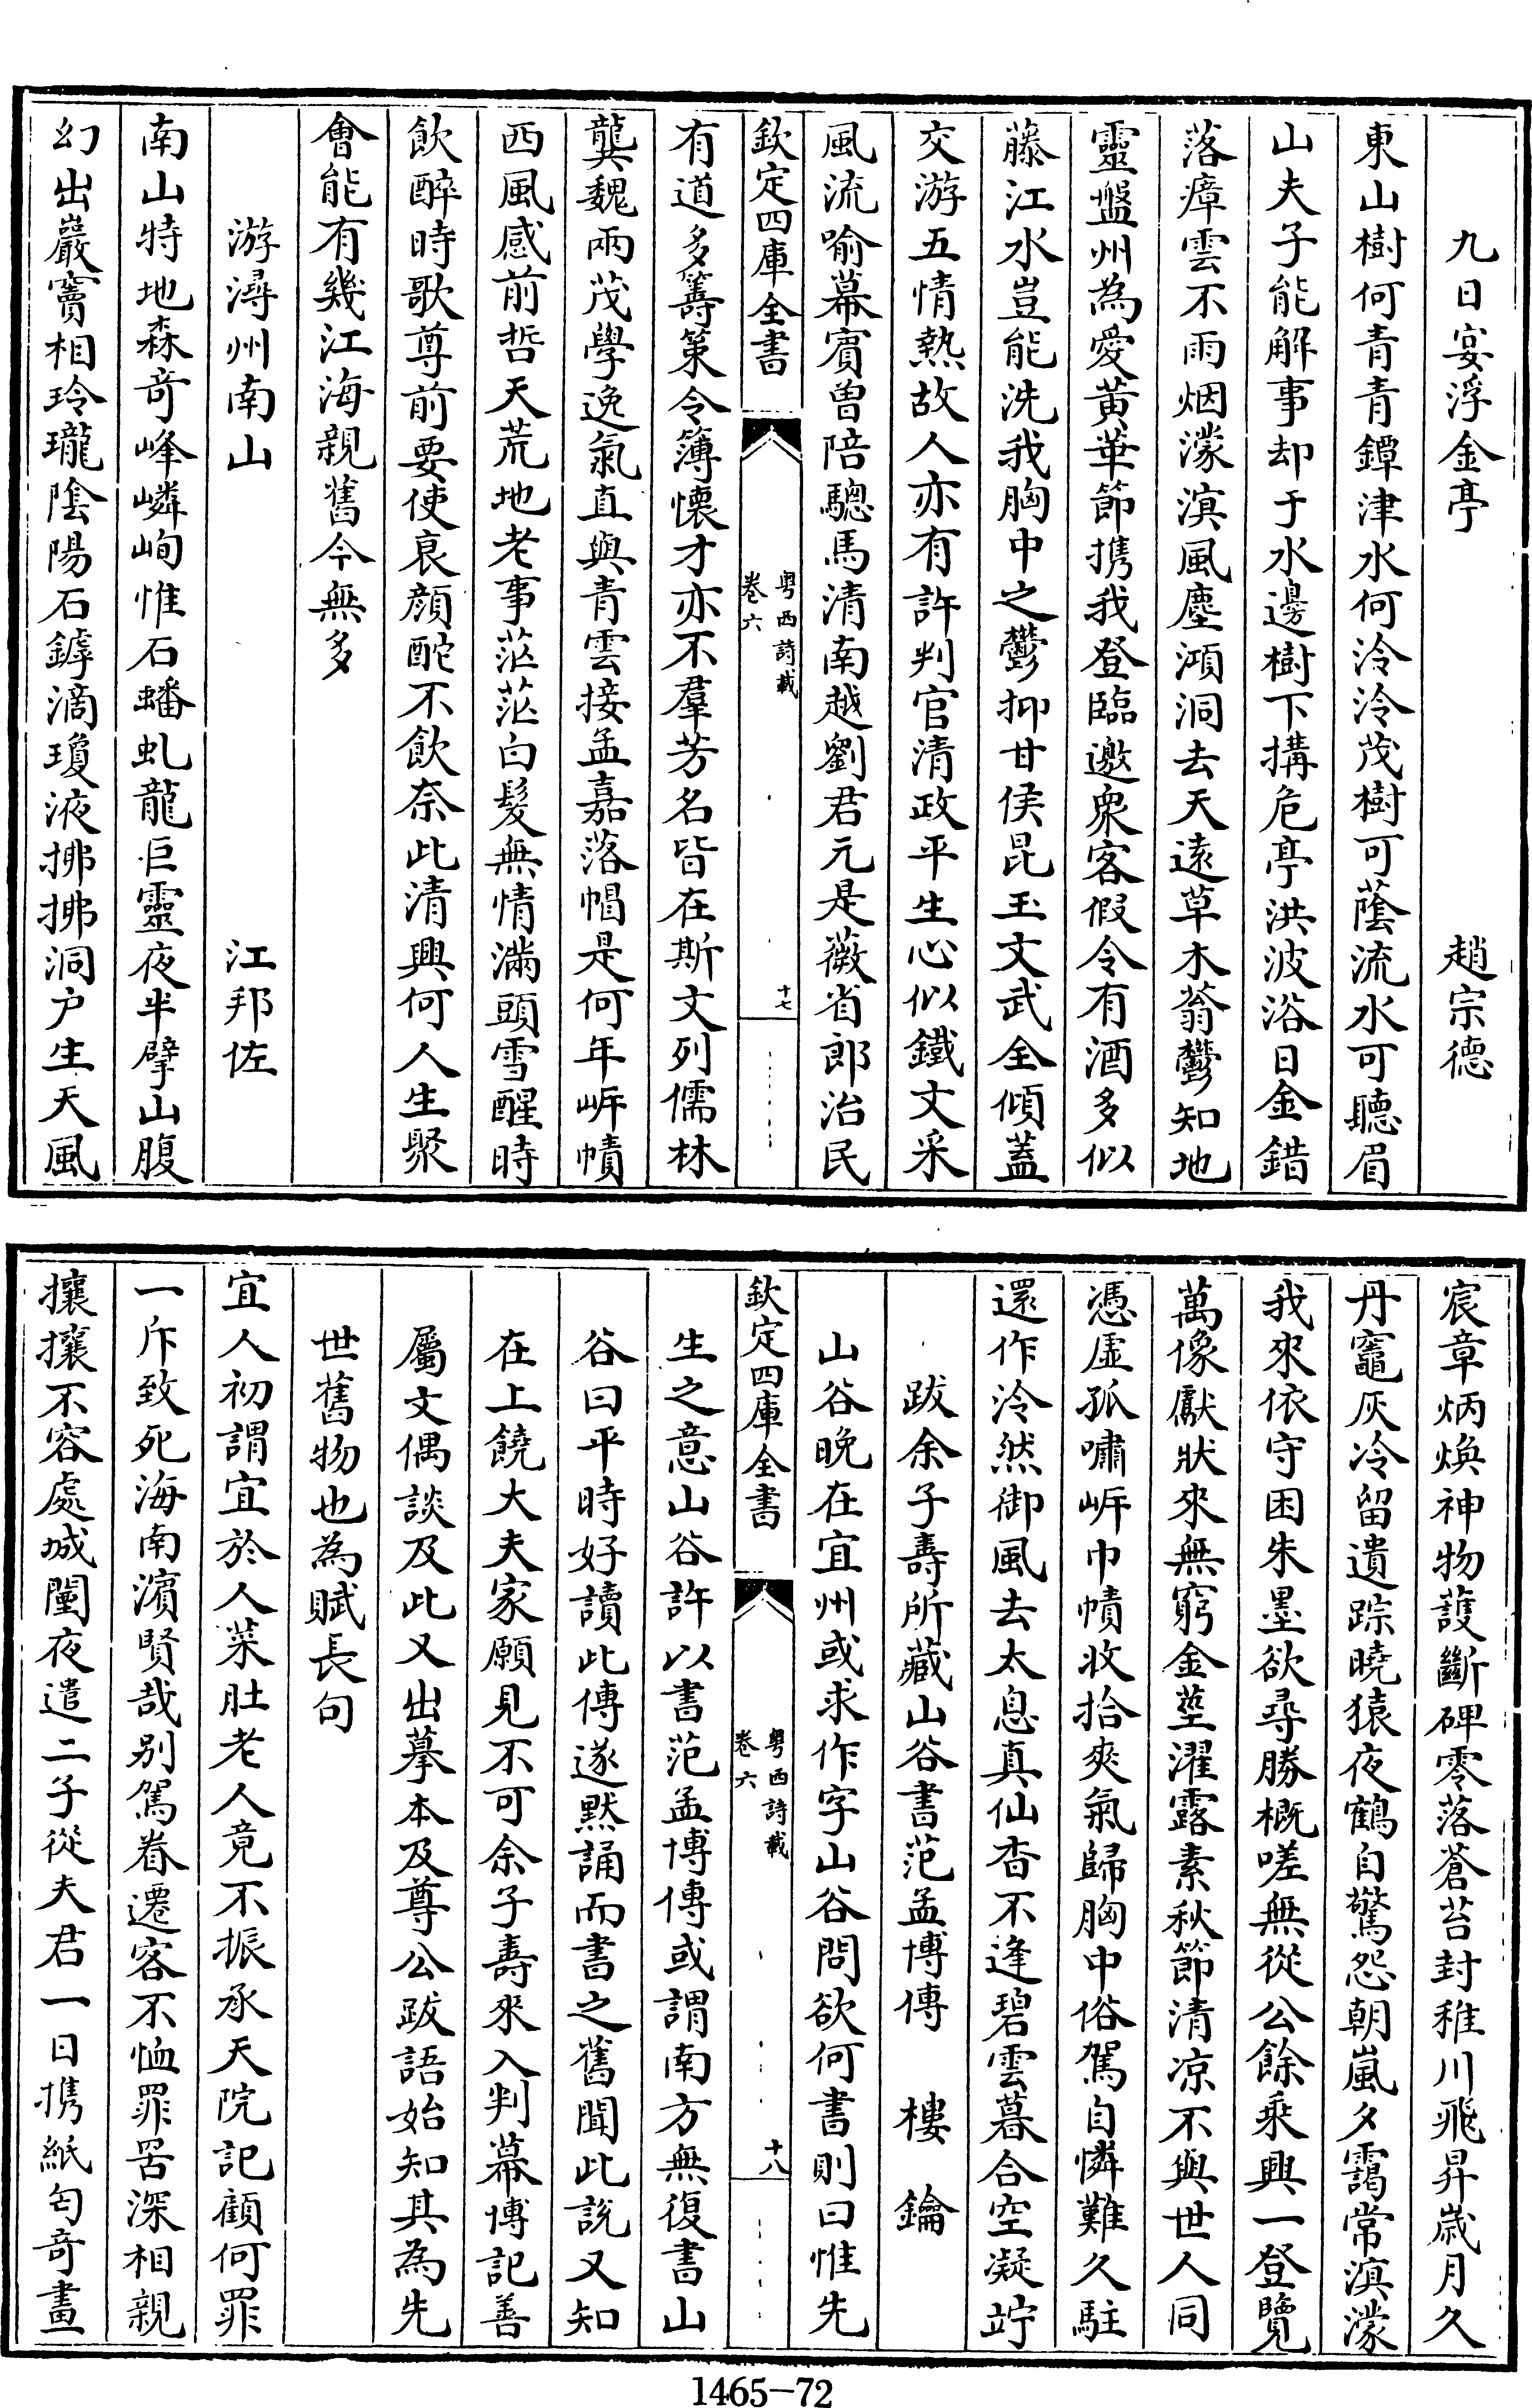 九日宴浮金亭　趙宗德
東山樹何青青鐔津水何泠泠茂樹可蔭流水可聽眉
山夫子能解事却于水邊樹下搆危亭洪波浴日金錯
落瘴雲不雨烟濛溟風塵澒洞去天遠草木蓊鬱知地
靈盤州為愛黃華節携我登臨邀衆客假令有酒多似
藤江水豈能洗我胸中之鬱抑甘侯昆玉文武全傾蓋
交游五情熱故人亦有許判官清政平生心似鐵文采
風流喻幕賓曽陪驄馬清南越劉君元是薇省郎治民
欽定四庫全書
粤西詩載
卷六
十七
有道多籌策令簿懷才亦不羣芳名皆在斯文列儒林
龔魏兩茂學逸氣直與青雲接孟嘉落帽是何年岸幘
西風感前哲天荒地老事茫茫白髮無情滿頭雪醒時
飲醉時歌尊前要使衰顔酡不飲奈此清興何人生聚
會能有幾江海親舊今無多
游潯州南山　江邦佐
南山特地森竒峰嶙峋惟石蟠虬龍巨靈夜半擘山腹
幻出巖竇相玲瓏陰陽石鏬滴瓊液拂拂洞户生天風
宸章炳煥神物䕶斷碑零落蒼苔封稚川飛昇歲月久
丹竈灰冷留遺踪曉猿夜鶴自驚怨朝嵐夕靄常溟濛
我來依守困朱墨欲尋勝概嗟無從公餘乘興一登覽
萬像獻狀來無窮金莖濯露素秋節清凉不與世人同
憑虛孤嘯岸巾幘收拾爽氣歸胸中俗駕自憐難久駐
還作泠然御風去太息真仙杳不逢碧雲暮合空凝竚
跋余子壽所藏山谷書范孟博傳　樓鑰
山谷晚在宜州或求作字山谷問欲何書則曰惟先
欽定四庫全書
粤西詩載
卷六
十八
生之意山谷許以書范孟博傳或謂南方無復書山
谷曰平時好讀此傳遂黙誦而書之舊聞此說又知
在上饒大夫家願見不可余子壽來入判幕博記善
屬文偶談及此又出摹本及尊公跋語始知其為先
世舊物也為賦長句
宜人初謂宜於人菜肚老人竟不振承天院記顧何罪
一斥致死海南濱賢哉別駕眷遷客不恤罪罟深相親
攘攘不容處城闉夜遣二子從夫君一日携紙匄竒畫
1465—72